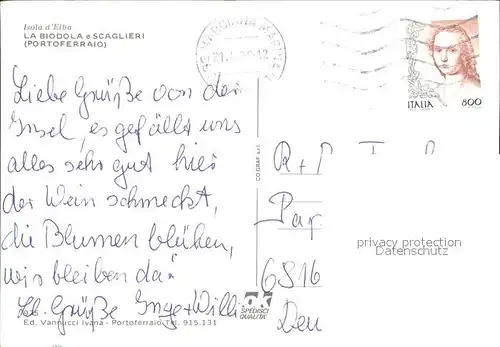 Isola d'Elba
LA BIODOLA e SCAGLIERI
(PORTOFERRAIO)
MARCIANA MARINA
ITALIA 800
Liebe Grüße von der
Insel, es gefällt uns
alles sehr gut hier
der Wein schmeckt,
die Blumen blühen,
wir bleiben da!
Lb. Grüße Inge+Willi
CO GRAF s.r.l.
R+
Par
6816
Deu
privacy protection
Datenschutz
ok
SPEDISCI
QUALITA'
Ed. Vannucci Ivana - Portoferraio Tel. 915.131